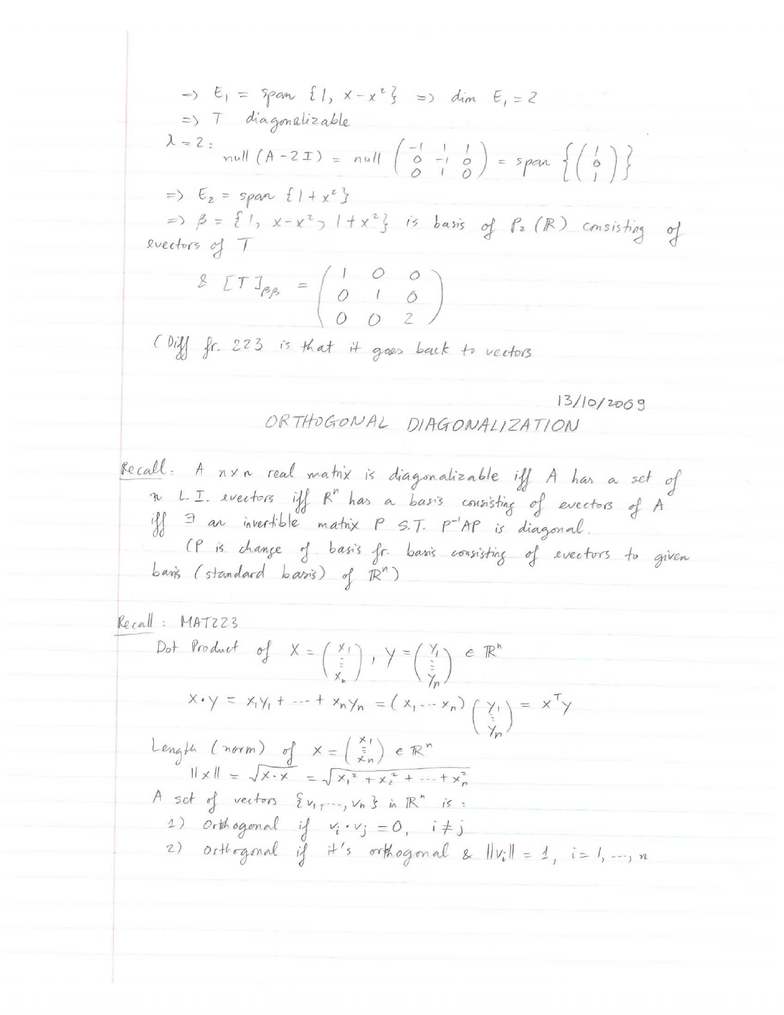 => E₁ = span {1, x-x²} => dim E₁ = 2
=> T diagonalizable
λ = 2:
null (A-2I) = null (-1 1 1; 0 -1 0; 0 1 0) = span {(1; 0; 1)}
=> E₂ = span {1+x²}
=> β = {1, x-x², 1+x²} is basis of P₂(ℝ) consisting of
evectors of T
& [T]ββ = (1 0 0; 0 1 0; 0 0 2)
(Diff fr. 223 is that it goes back to vectors
13/10/2009
ORTHOGONAL DIAGONALIZATION
Recall: A n×n real matrix is diagonalizable iff A has a set of
n L.I. evectors iff ℝⁿ has a basis consisting of evectors of A
iff ∃ an invertible matrix P S.T. P⁻¹AP is diagonal.
(P is change of basis fr. basis consisting of evectors to given
basis (standard basis) of ℝⁿ)
Recall: MAT223
Dot Product of x = (x₁; ⋮; xₙ), y = (y₁; ⋮; yₙ) ∈ ℝⁿ
x·y = x₁y₁ + ··· + xₙyₙ = (x₁ ··· xₙ) (y₁; ⋮; yₙ) = xᵀy
Length (norm) of x = (x₁; ⋮; xₙ) ∈ ℝⁿ
||x|| = √x·x = √x₁² + x₂² + ··· + xₙ²
A set of vectors {v₁, ..., vₙ} in ℝⁿ is:
1) Orthogonal if vᵢ·vⱼ = 0, i ≠ j
2) Orthogonal if it's orthogonal & ||vᵢ|| = 1, i = 1, ..., n